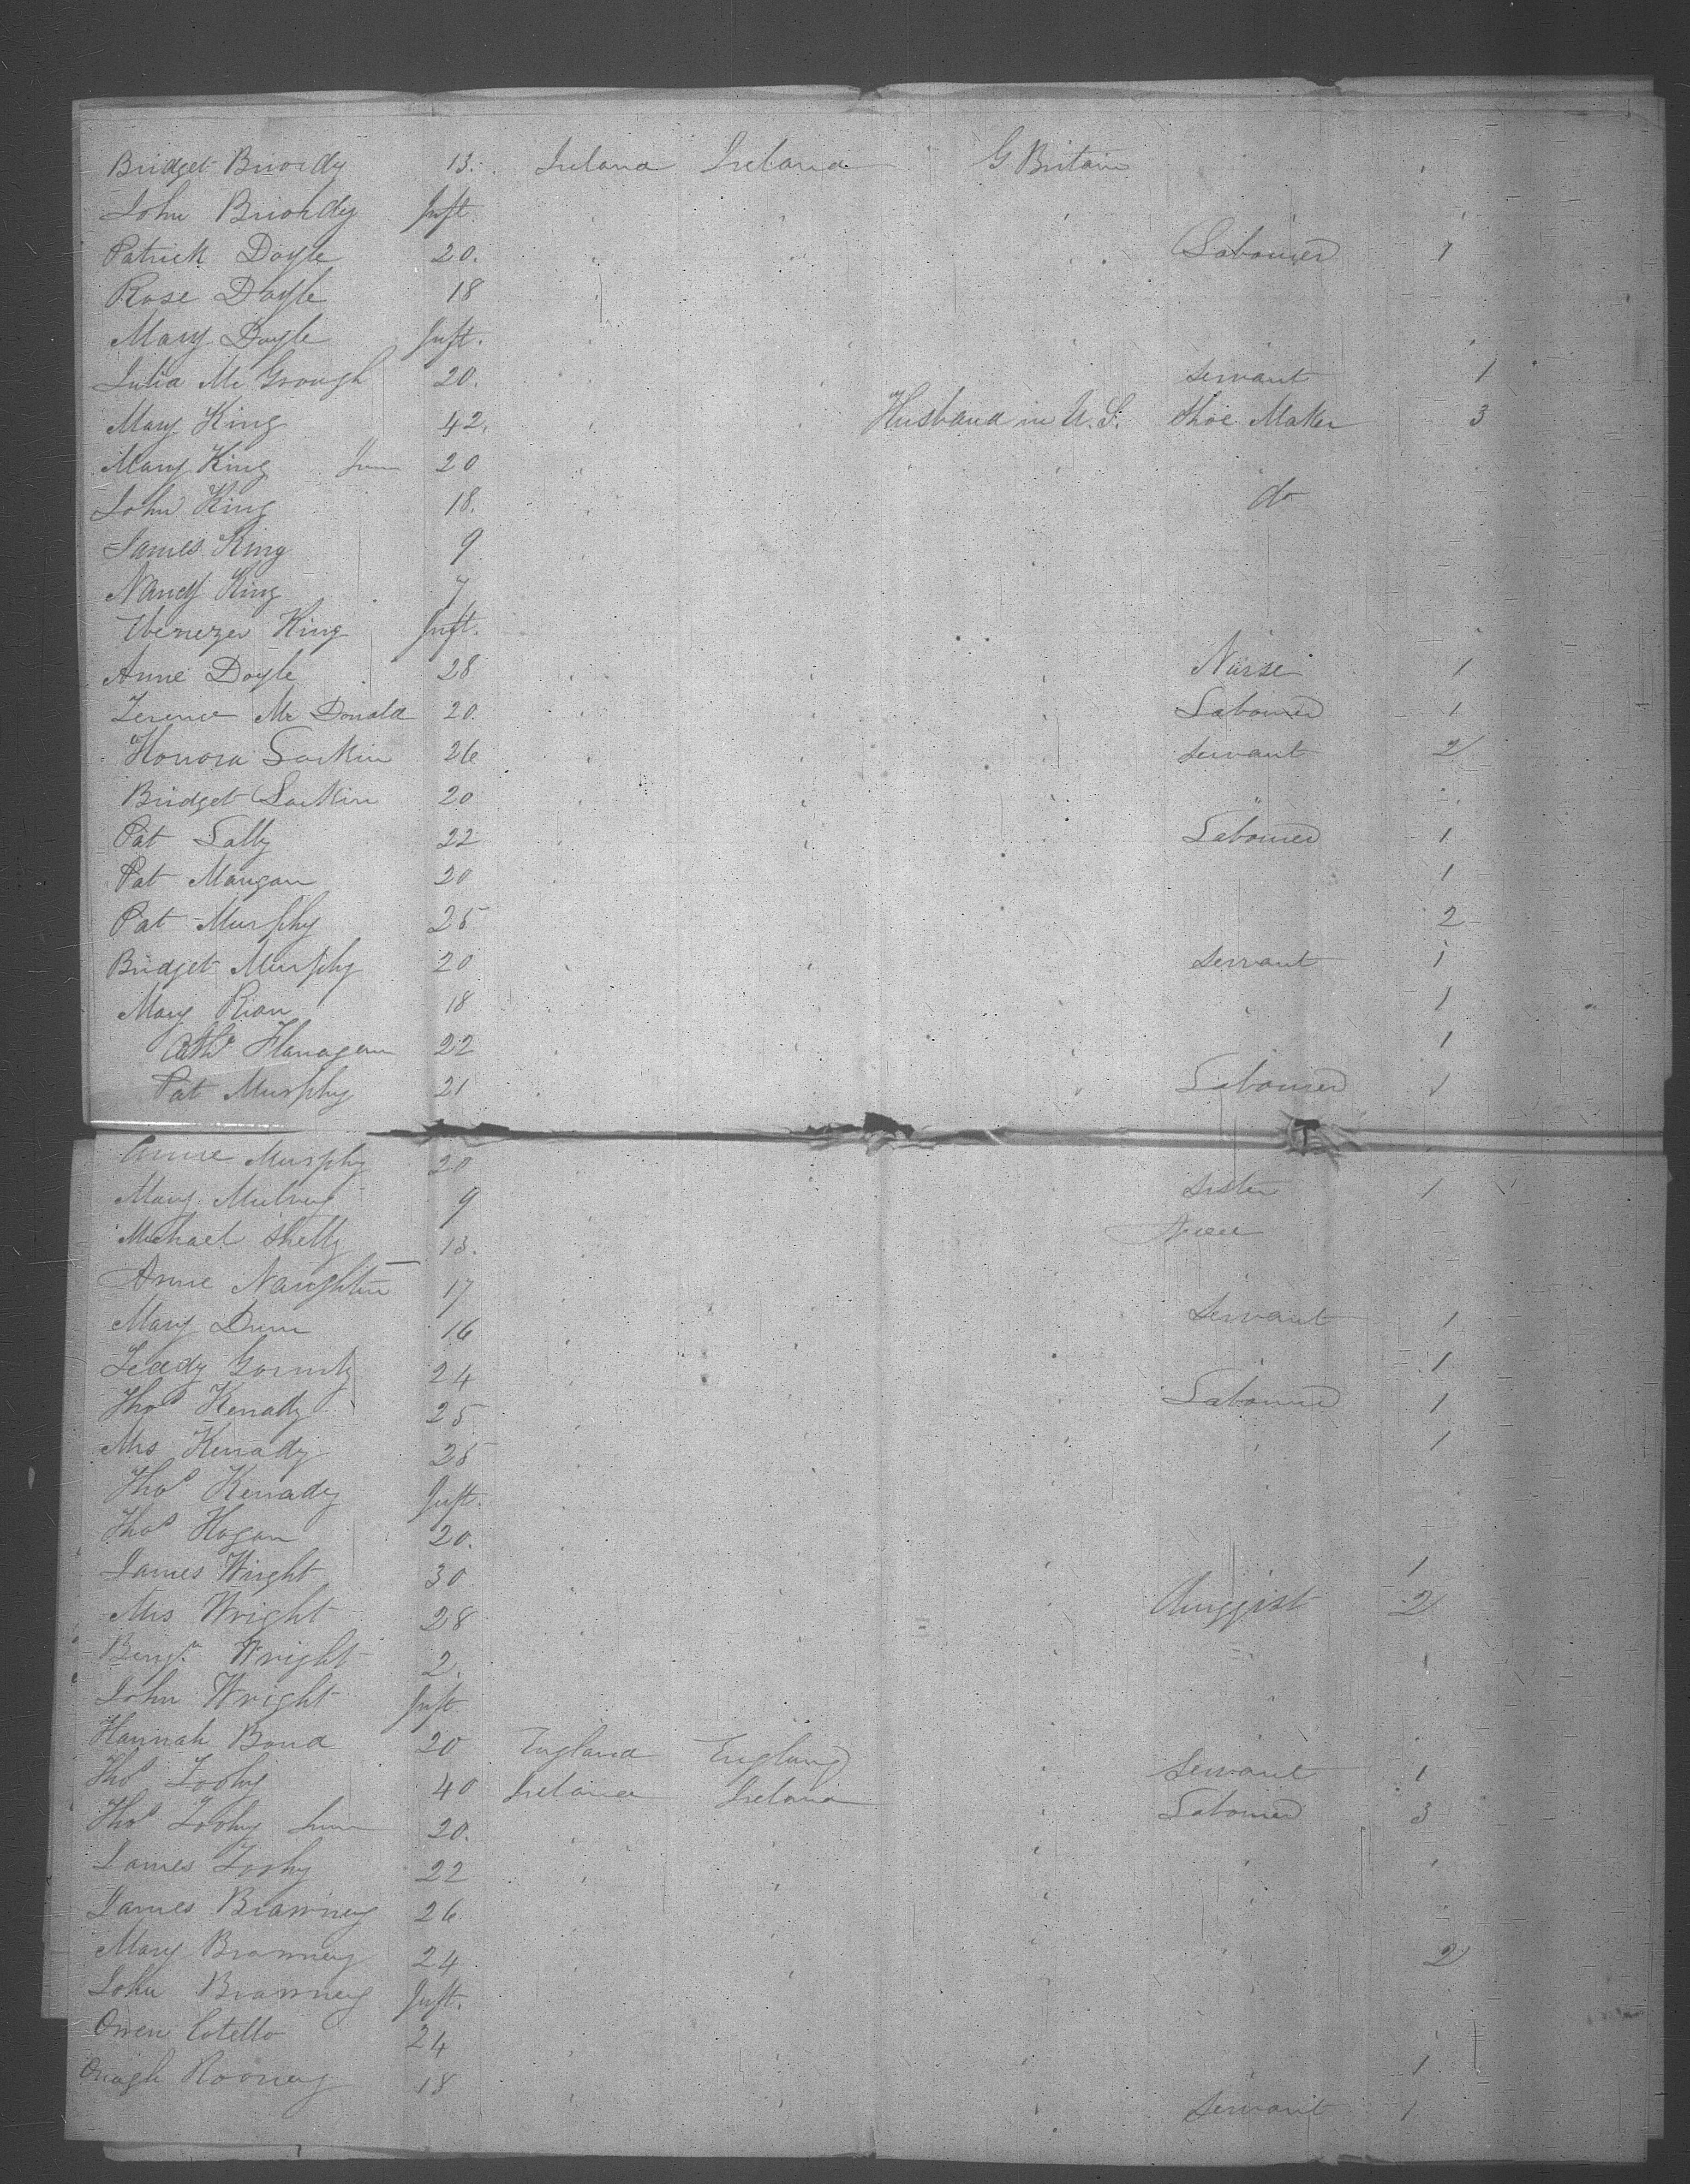 Bridget Briordy 13. Ireland Ireland G Britain
John Briordy Inft.
Patrick Doyle 20. Labourer 1
Rose Doyle 18
Mary Doyle Inft.
Julia Mc Grough 20. servant 1
Mary King 42. Husband in U.S. Shoe Maker 3
Mary King Junr 20
John King 18. do
James King 9
Nancy King 7
Ebenezer King Inft.
Anne Doyle 28 Nurse 1
Terence Mc Donald 20. Labourer 1
Honora Larkin 26 servant 2
Bridget Larkin 20 "
Pat Lally 22 Labourer 1
Pat Mangan 20 1
Pat Murphy 25 2
Bridget Murphy 20 servant 1
Mary Rian 18 " 1
Cathe Flanagan 22 1
Pat Murphy 21 Labourer 1
Anne Murphy 20
Mary Mulvey 9 sister 1
Michael Shelly 13. Niece
Anne Naughtin 17
Mary Dunn 16 servant 1
Teady 24 1
Thos Kenady 25 Labourer 1
Mrs Kenady 25 1
Thos Kenady Inft.
Thos Hogan 20.
James Wright 30 1
Mrs Wright 28 Druggist 2
Benjn Wright 2.
John Wright Inft
Hannah Bond 20 England England
Thos Toohy 40 Ireland Ireland servant 1
Thos Toohy Junr 20. Labourer 3
James Toohy 22
James Brawney 26
Mary Brawney 24 2
John Brawney Inft.
Owen Cotello 24
Onagh Rooney 18 1
servant 1